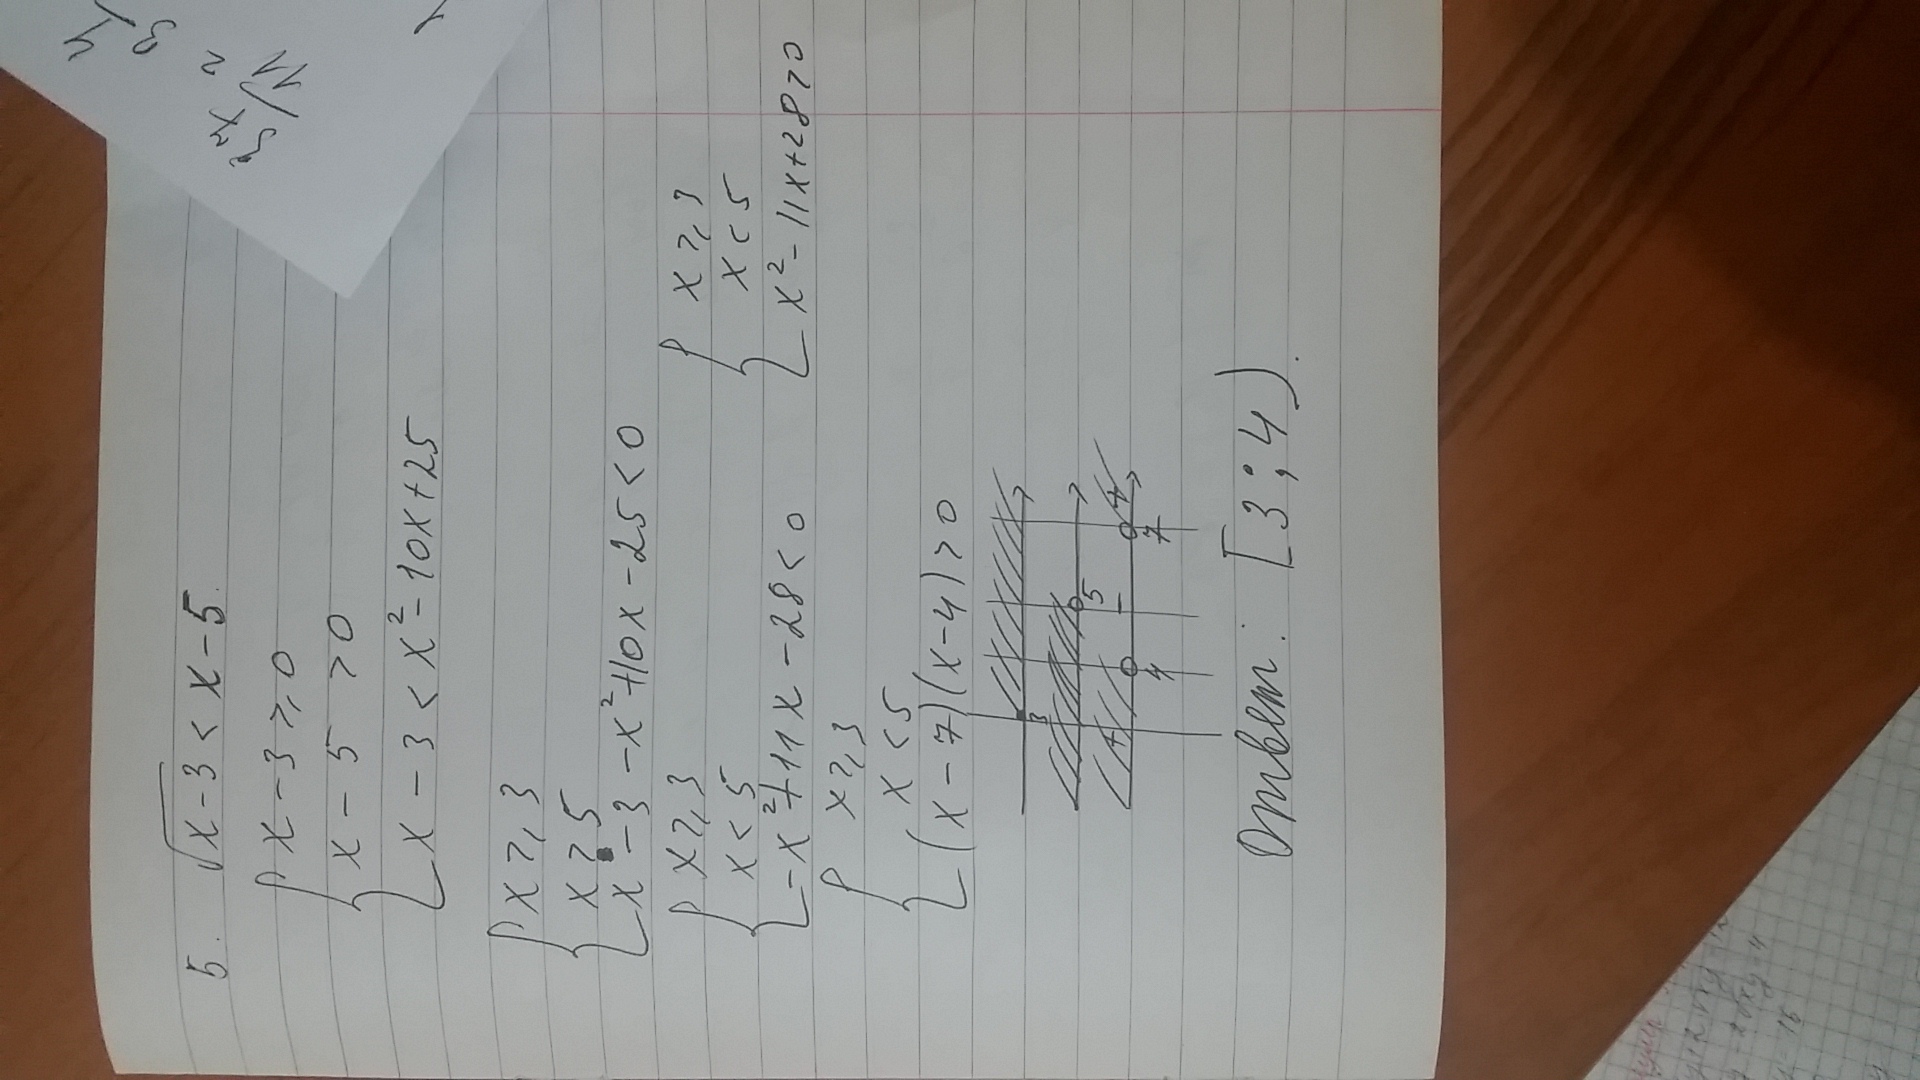 5. √x-3 < x-5.
{ x-3 ⩾ 0
x-5 > 0
x-3 < x²-10x+25
{ x ⩾ 3
x > 5
x-3-x²+10x-25 < 0
{ x ⩾ 3
x < 5
-x²+11x-28 < 0
{ x ⩾ 3
x < 5
x²-11x+28 > 0
{ x ⩾ 3
x < 5
(x-7)(x-4) > 0
3
5
+ - +
4 7
Ответ: [3; 4).